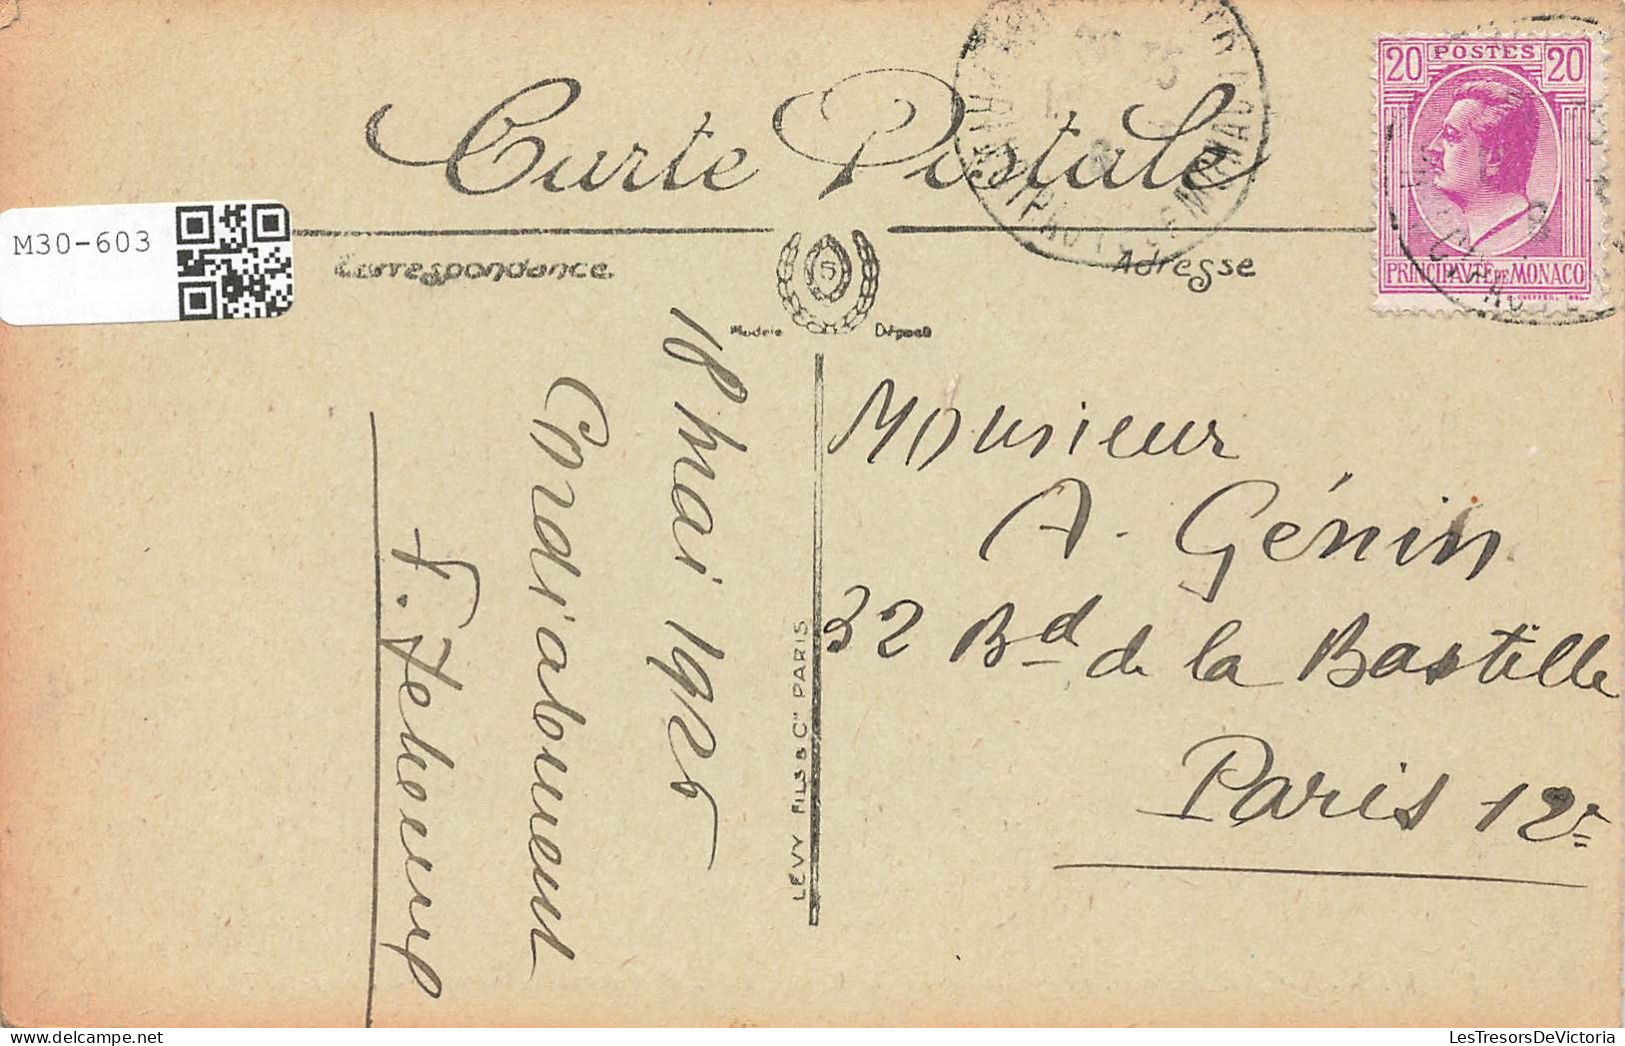 Carte Postale
M30-603
Correspondance
Adresse
5
Modèle Déposé
20 POSTES 20
PRINCIPAUTÉ DE MONACO
18 Mai 1925
Cordialement
LÉVY FILS & Cie PARIS
Monsieur
A. Génin
32 Bd de la Bastille
Paris 12e
LesTresorsDeVictoria